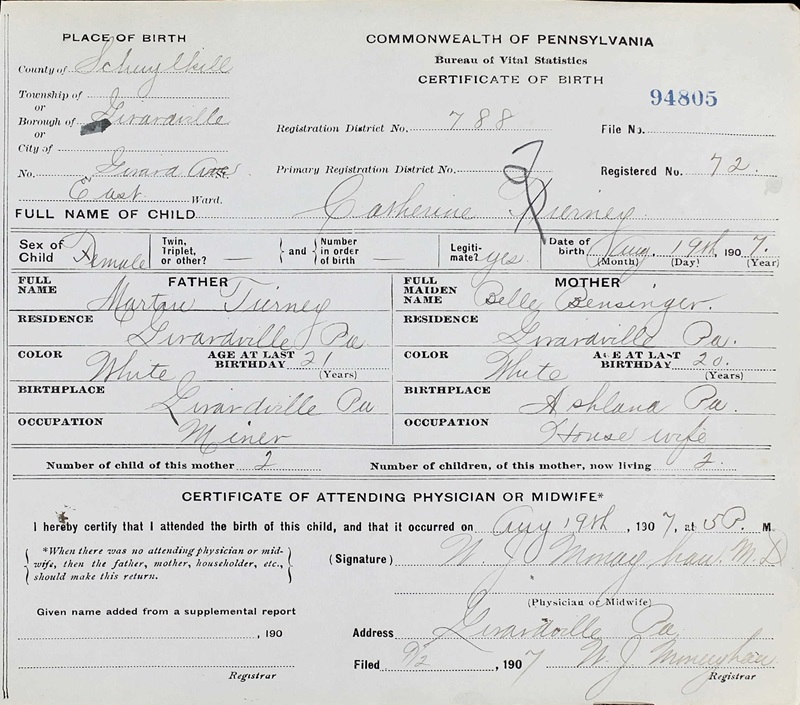 PLACE OF BIRTH
COMMONWEALTH OF PENNSYLVANIA
Bureau of Vital Statistics
CERTIFICATE OF BIRTH
County of Schuylkill
94805
Township of
or
Borough of Girardville
or
City of
Registration District No. 788 File No.
No. Girard Ave St.
East Ward.
Primary Registration District No. Registered No. 72.
FULL NAME OF CHILD Catherine Tierney
Sex of Child Female Twin, Triplet, or other? — and Number in order of birth — Legiti-mate? yes. Date of birth Aug. 19th, 1907. (Month) (Day) (Year)
FATHER
FULL NAME Martin Tierney
RESIDENCE Girardville Pa
COLOR White AGE AT LAST BIRTHDAY 21 (Years)
BIRTHPLACE Girardville Pa
OCCUPATION Miner
MOTHER
FULL MAIDEN NAME Belle Bensinger.
RESIDENCE Girardville Pa.
COLOR White AGE AT LAST BIRTHDAY 20. (Years)
BIRTHPLACE Ashland Pa.
OCCUPATION House wife
Number of child of this mother 2 Number of children, of this mother, now living 2.
CERTIFICATE OF ATTENDING PHYSICIAN OR MIDWIFE*
I hereby certify that I attended the birth of this child, and that it occurred on Aug 19th, 1907, at 5 P. M.
*When there was no attending physician or mid-
wife, then the father, mother, householder, etc.,
should make this return.
(Signature) W. J. Monaghan. M.D
(Physician or Midwife)
Given name added from a supplemental report
, 190
Registrar
Address Girardville Pa
Filed 9/2, 1907 W. J. Monaghan
Registrar